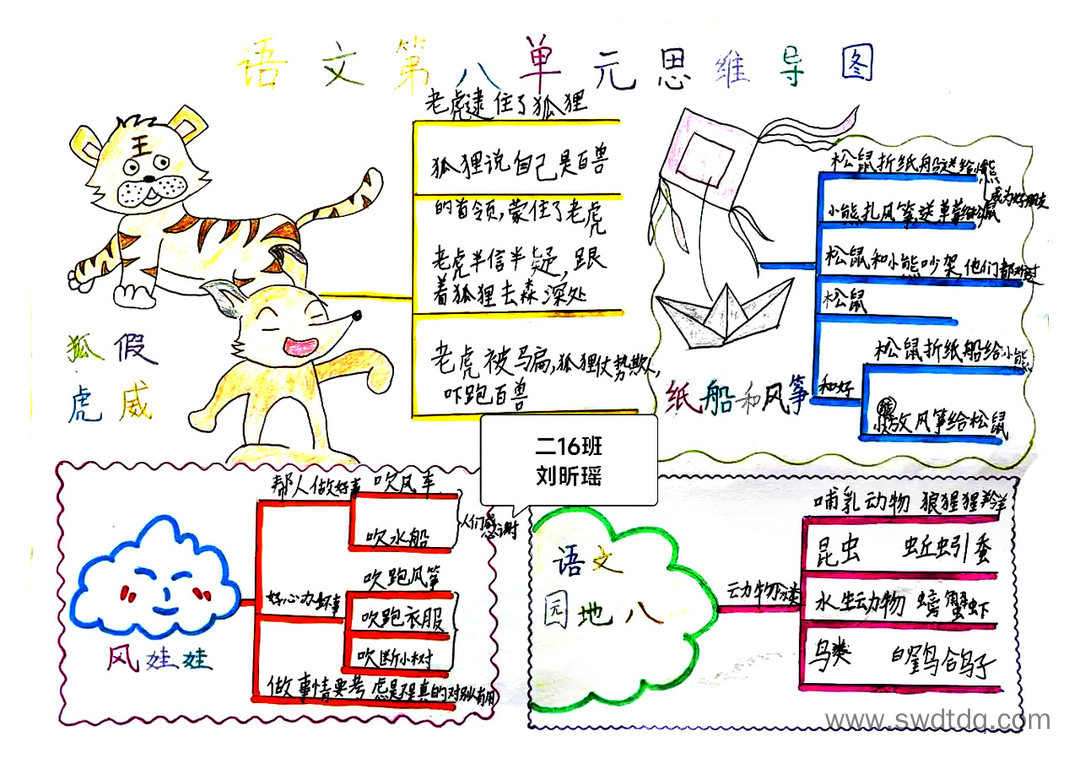 语文第八单元思维导图
老虎逮住了狐狸
狐狸说自己是百兽
的首领，蒙住了老虎
老虎半信半疑，跟
着狐狸去森深处
老虎被骗，狐狸仗势欺人，
吓跑百兽
狐假
虎威
松鼠折纸船送给小熊
小熊扎风筝送草莓给松鼠
成为好朋友
松鼠和小熊吵架他们都难过
松鼠
和好
松鼠折纸船给小熊
小熊放风筝给松鼠
纸船和风筝
二16班
刘昕瑶
帮人做好事
吹风车
吹水船
人们感谢时
好心办坏事
吹跑风筝
吹跑衣服
吹断小树
做事情要考虑是不是真的对别人有用
风娃娃
语文
园地八
云力物分类
哺乳动物 狼猩猩羚羊
昆虫 蚯虫引蚕
水生动物 螃蟹虾
鸟类
www.swdtdq.com